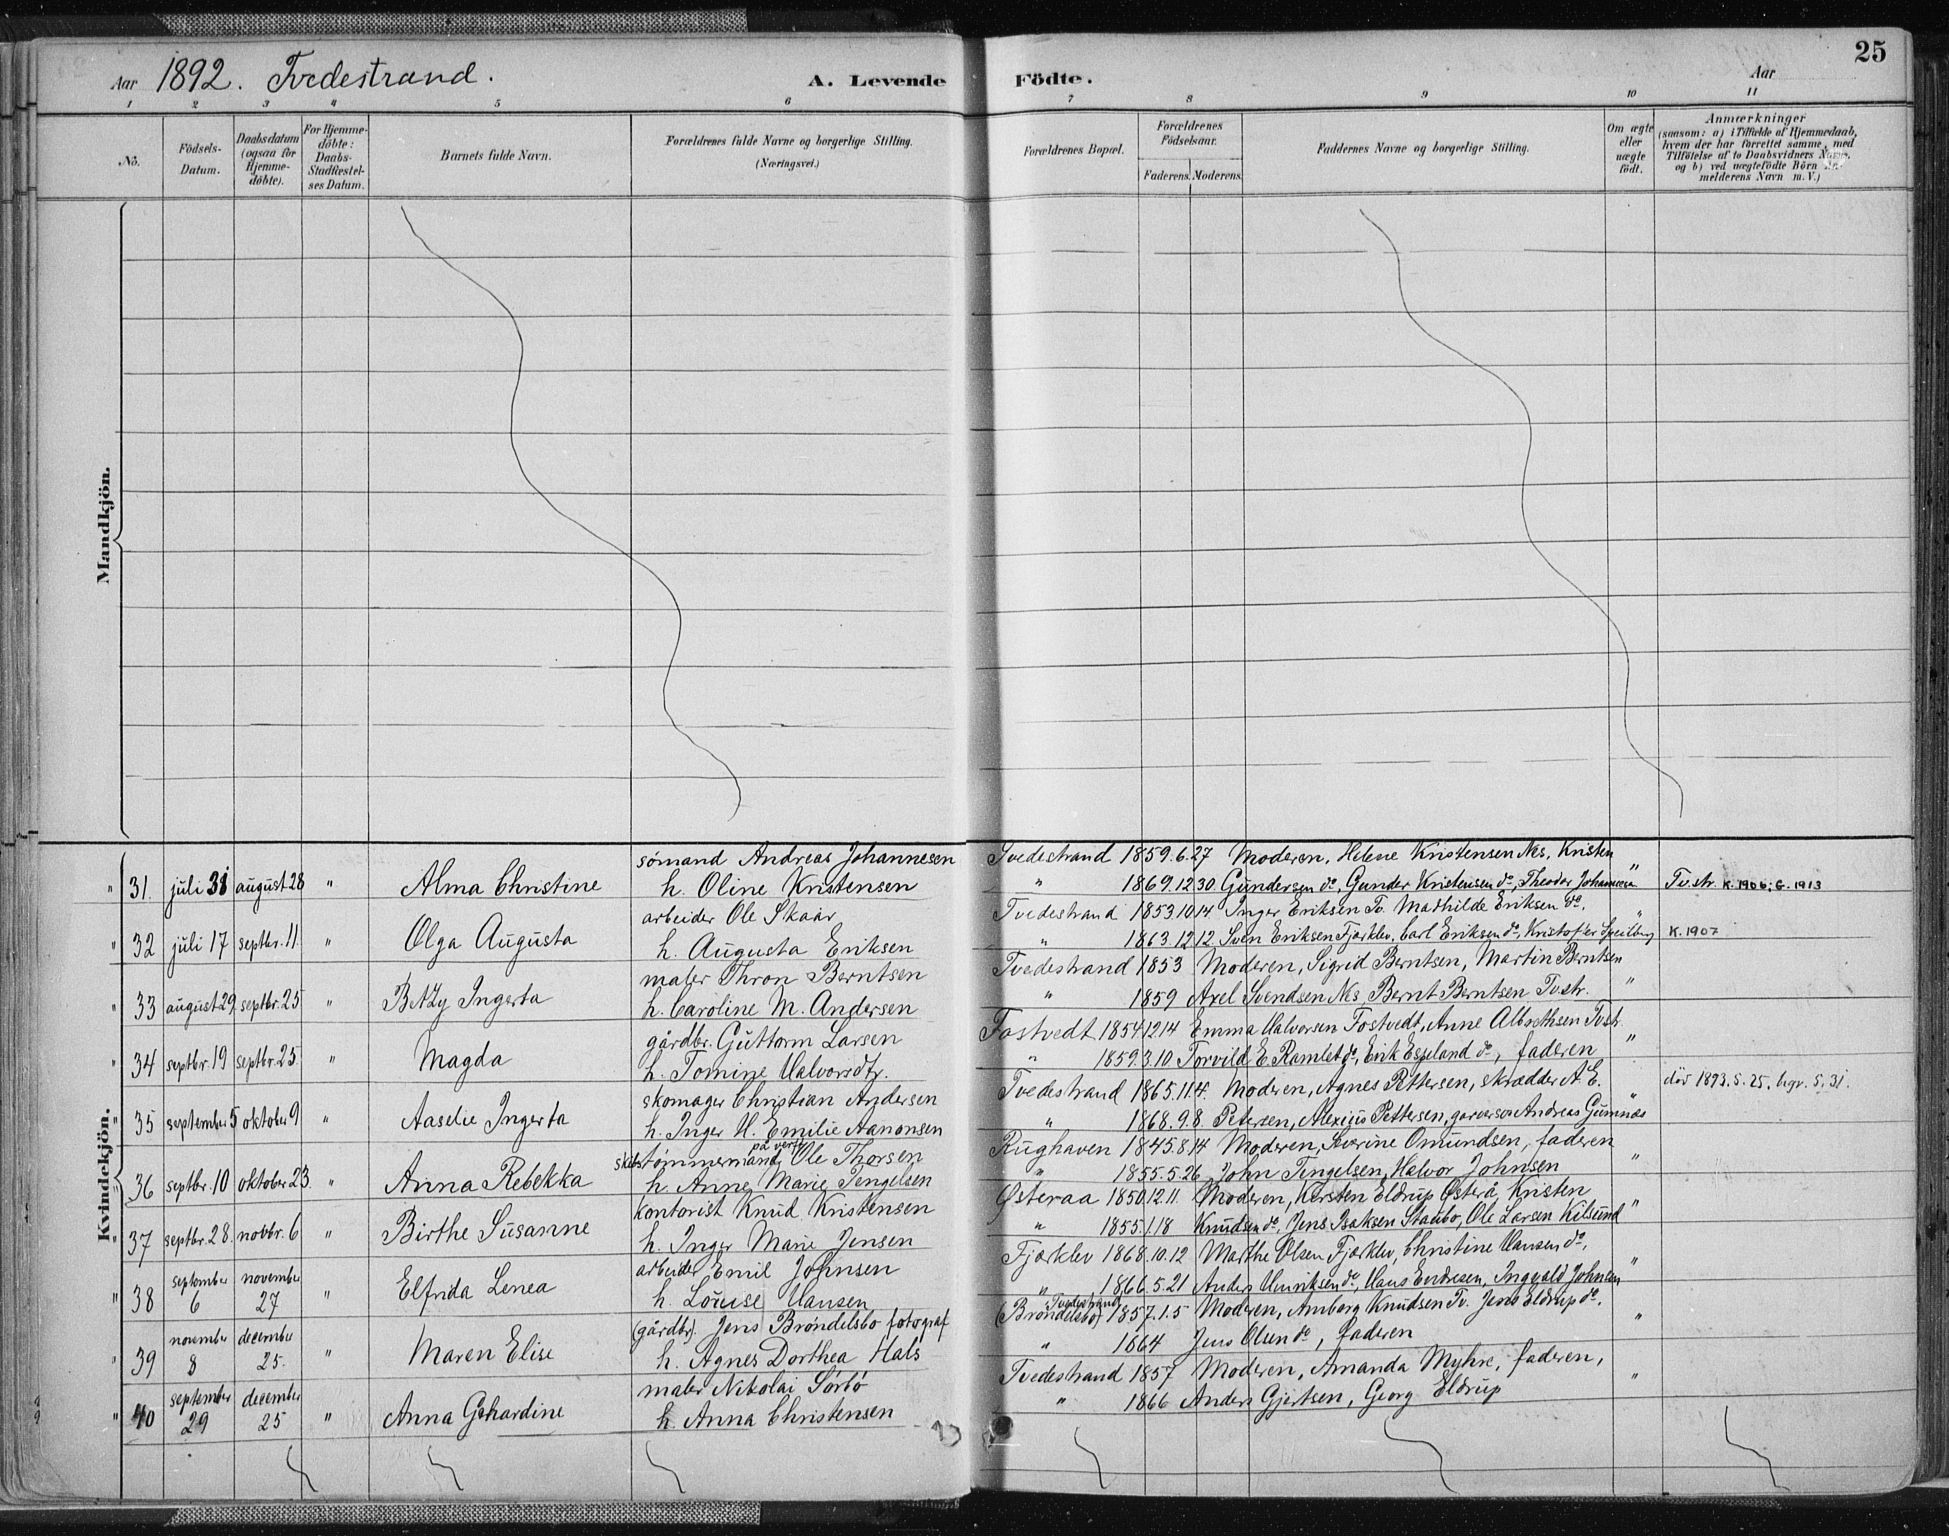 25
Aar 1892. Tvedestrand. A. Levende Födte. Aar
1 2 3 4 5 6 7 8 9 10 11
No. Födsels-Datum. Daabsdatum (ogsaa for Hjemmedöbte). For Hjemmedöbte: Daabs-Stadfæstelses Datum. Barnets fulde Navn. Forældrenes fulde Navne og borgerlige Stilling. (Næringsvei.) Forældrenes Bopæl. Forældrenes Födselsaar. Faderens. Moderens. Faddernes Navne og borgerlige Stilling. Om ægte eller uægte födt. Anmærkninger (saasom: a) i Tilfælde af Hjemmedaab, hvem der har forrettet samme, med Tilföielse af to Daabsvidners Navne, og b) ved uægtefödte Börn melderens Navn m. V.)
Mandkjön.
Kvindekjön.
sömand Andreas Johannesen Tvedestrand 1859.6.27 Moderen, Helene Kristensen Nes, Kristen
" 31. juli 31 august 28 " Alma Christine h. Oline Kristensen " 1869.12.30. Gundersen do, Gunder Kristensen do, Theodor Johannesen " Tv.str. K. 1906; G. 1913
arbeider Ole Skaar Tvedestrand 1853.10.14 Inger Eriksen Tv. Mathilde Eriksen do.
" 32 juli 17 septbr. 11 " Olga Augusta h. Augusta Eriksen " 1863.12.12. Sven Eriksen Fjærklev, Carl Eriksen do, Kristoffer " K. 1907
maler Thron Berntsen Tvedestrand 1853 Moderen, Sigrid Berntsen, Martin Berntsen
" 33 august 29. septbr. 25 " Betzy Ingerta h. Caroline M. Andersen " 1859 Axel Svendsen Nes, Bernt Berntsen Tv.str. "
gårdbr. Guttorm Larsen Fostvedt 1854.12.14 Emma Halvorsen Fostvedt, Anne Albrethsen Tvstr.
" 34 septbr. 19 septbr. 25. " Magda h. Tomine Halvorsdtr. " 1859.3.10. Torvild E. Ramlet do, Erik Esseland do, faderen "
skomager Christian Andersen Tvedestrand 1865.11.4. Moderen, Agnes Pettersen, skrædder A. E. död 1893.5.25. begr. 5.31.
" 35 september 5 oktober 9 " Aasdie Ingerta h. Inger H. Emilie Aanonsen " 1868.9.8. Petersen, Alexius Pettersen, garversv. Andreas Gumnæs "
på verft
skibstømmermand Ole Thorsen Rughaven 1845.8.14 Moderen, Severine Omundsen, faderen
" 36 septbr. 10 oktober 23. " Anna Rebekka h. Anne Marie Tengelsen " 1855.5.26. John Tengelsen, Halvor Johnsen "
kontorist Knud Kristensen Østeraa 1850.12.11. Moderen, Kirsten Eldrup Østerå, Kristen
" 37 septbr. 28. novbr. 6 " Birthe Susanne h. Inger Marie Jensen " 1855.1.18 Knudsen do, Jens Isaksen Staubo, Ole Larsen Kilsund "
arbeider Emil Johnsen Fjærklev 1868.10.12 Marthe Olsen Fjærklev, Christine Hansen do.
" 38 september 6 november 27 " Elfrida Lenea h. Louise Hansen " 1866.5.21 Anders Henriksen do, Hans Endresen, Ingvald Johnsen "
Tvedestrand
(gårdbr). Jens Brøndelsbo fotograf (Brøndelsbo) 1857.1.5 Moderen, Amborg Knudsen Tv. Jens Eldrup do.
" 39 november 8 december 25. " Maren Elise h. Agnes Dorthea Hals " 1864 Jens Olsen do, faderen "
maler Nikolai Sørbø Tvedestrand 1857 Moderen, Amanda Myhre, faderen,
" 40 september 29 december 25 " Anna Gehardine h. Anna Christensen " 1866 Anders Gjertsen, Georg Eldrup "